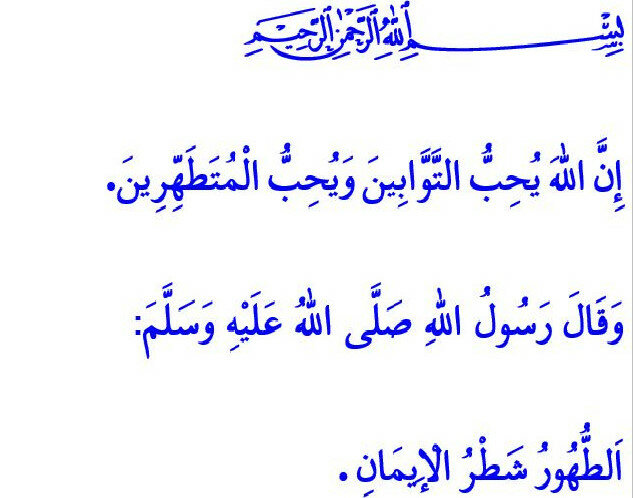 بِسْمِ اللهِ الرَّحْمٰنِ الرَّحِيمِ
إِنَّ اللهَ يُحِبُّ التَّوَّابِينَ وَيُحِبُّ الْمُتَطَهِّرِينَ.
وَقَالَ رَسُولُ اللهِ صَلَّى اللهُ عَلَيْهِ وَسَلَّمَ:
اَلطُّهُورُ شَطْرُ الْإِيمَانِ.